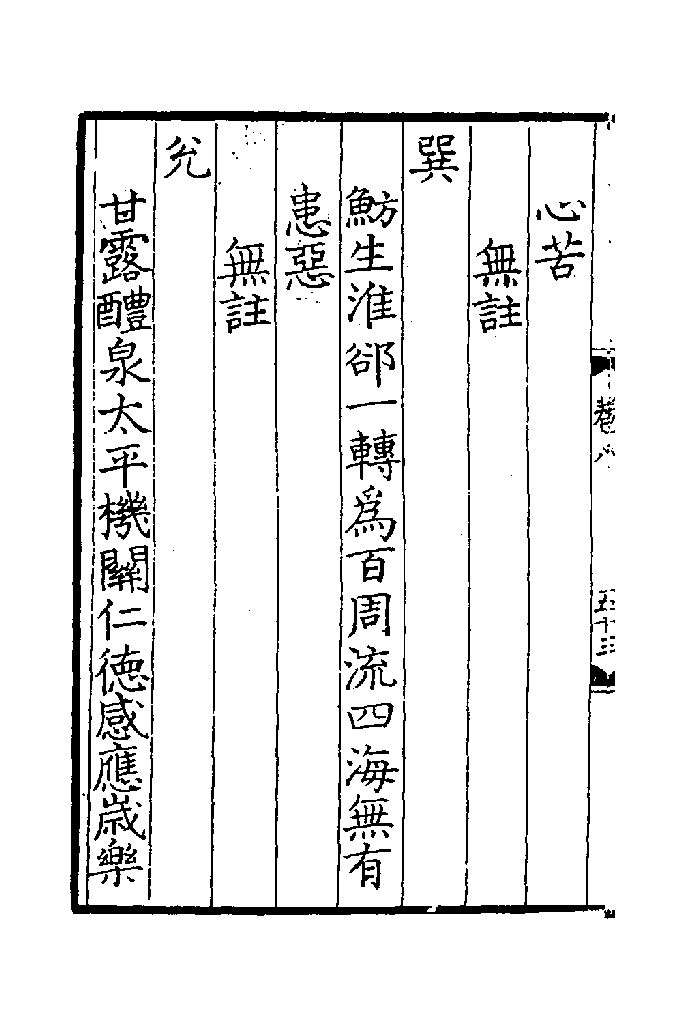 卷八
五十三
心苦
無註
巽
魴生淮郤一轉為百周流四海無有
患惡
無註
兊
甘露醴泉太平機關仁德感應歳樂